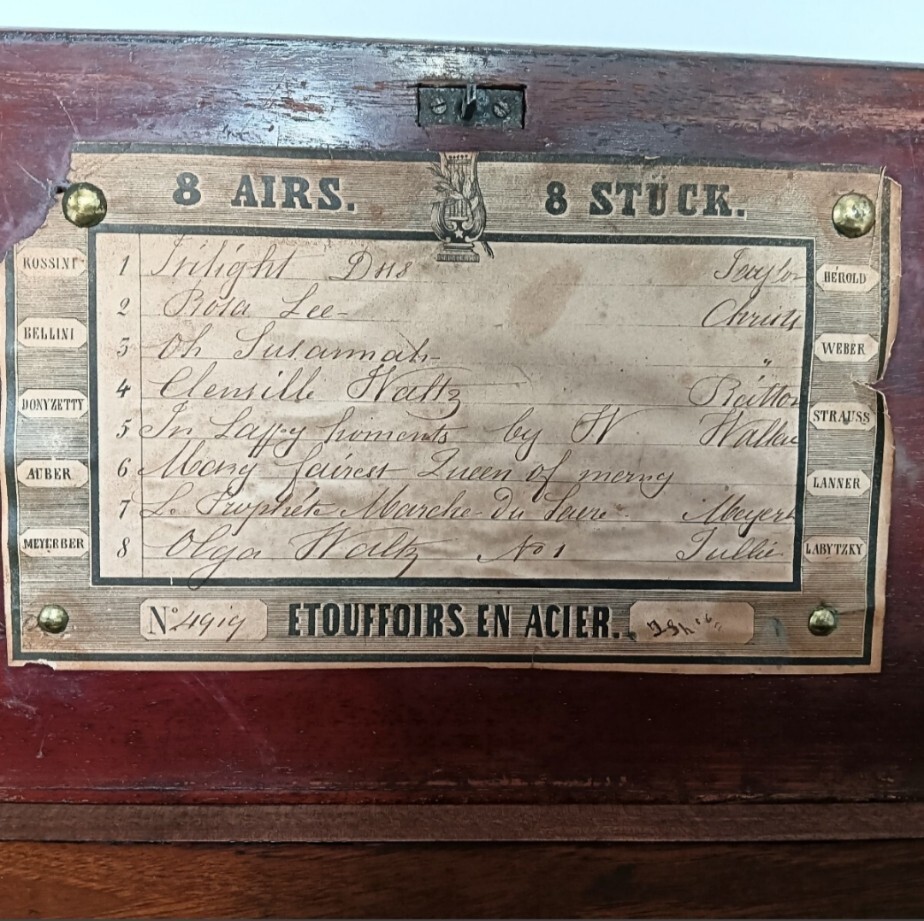 8 AIRS. 8 STÜCK.
ROSSINI
BELLINI
DONYZETTY
AUBER
MEYERBER
1 Trilight Dews Taylor
2 Rosa Lee- Christy
3 Oh Susannah- "
4 Waltz
5 In Happy moments by W Wallace
6 Mary fairest Queen of
7 Le Prophéte Marche Du Sacre Meyerb
8 Olga Waltz No 1 Jullie
HÉROLD
WEBER
STRAUSS
LANNER
LABYTZKY
No 4919 ETOUFFOIRS EN ACIER.